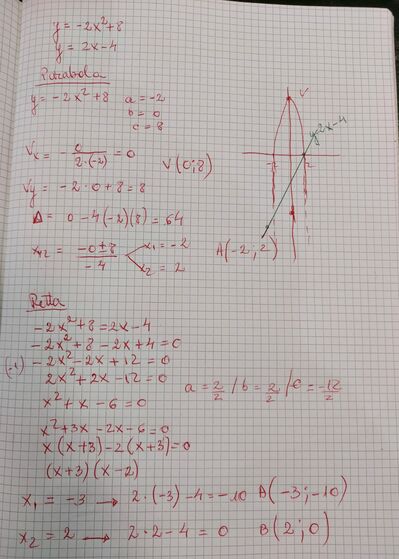 y = -2x²+8
y = 2x-4
Parabola
y = -2x²+8 a = -2
b = 0
c = 8
Vx = - 0/2·(-2) = 0 V(0;8)
Vy = -2·0+8 = 8
Δ = 0-4(-2)(8) = 64
x1,2 = -0±8/-4 x1 = -2
x2 = 2
V
y=2x-4
-2 2
A(-2;2)
Retta
-2x²+8 = 2x-4
-2x²+8-2x+4 = 0
(-1) -2x²-2x+12 = 0
2x²+2x-12 = 0 a = 2/2 / b = 2/2 / c = -12/2
x²+x-6 = 0
x²+3x-2x-6 = 0
x(x+3)-2(x+3) = 0
(x+3)(x-2)
x1 = -3 → 2·(-3)-4 = -10 A(-3;-10)
x2 = 2 → 2·2-4 = 0 B(2;0)